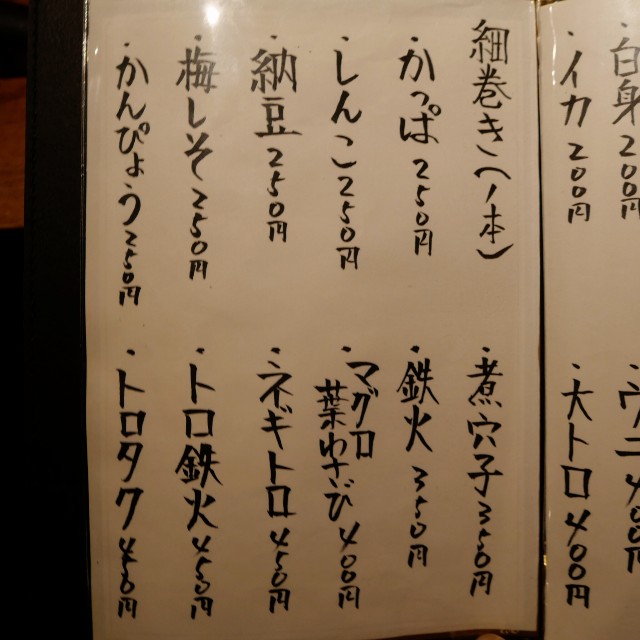 白身200円
・イカ200円
・大トロ400円
細巻き(1本)
・かっぱ250円
・しんこ250円
・納豆250円
・梅しそ250円
・かんぴょう250円
・煮穴子350円
・鉄火350円
・マグロ
葉わさび400円
・ネギトロ450円
・トロ鉄火450円
・トロタク450円